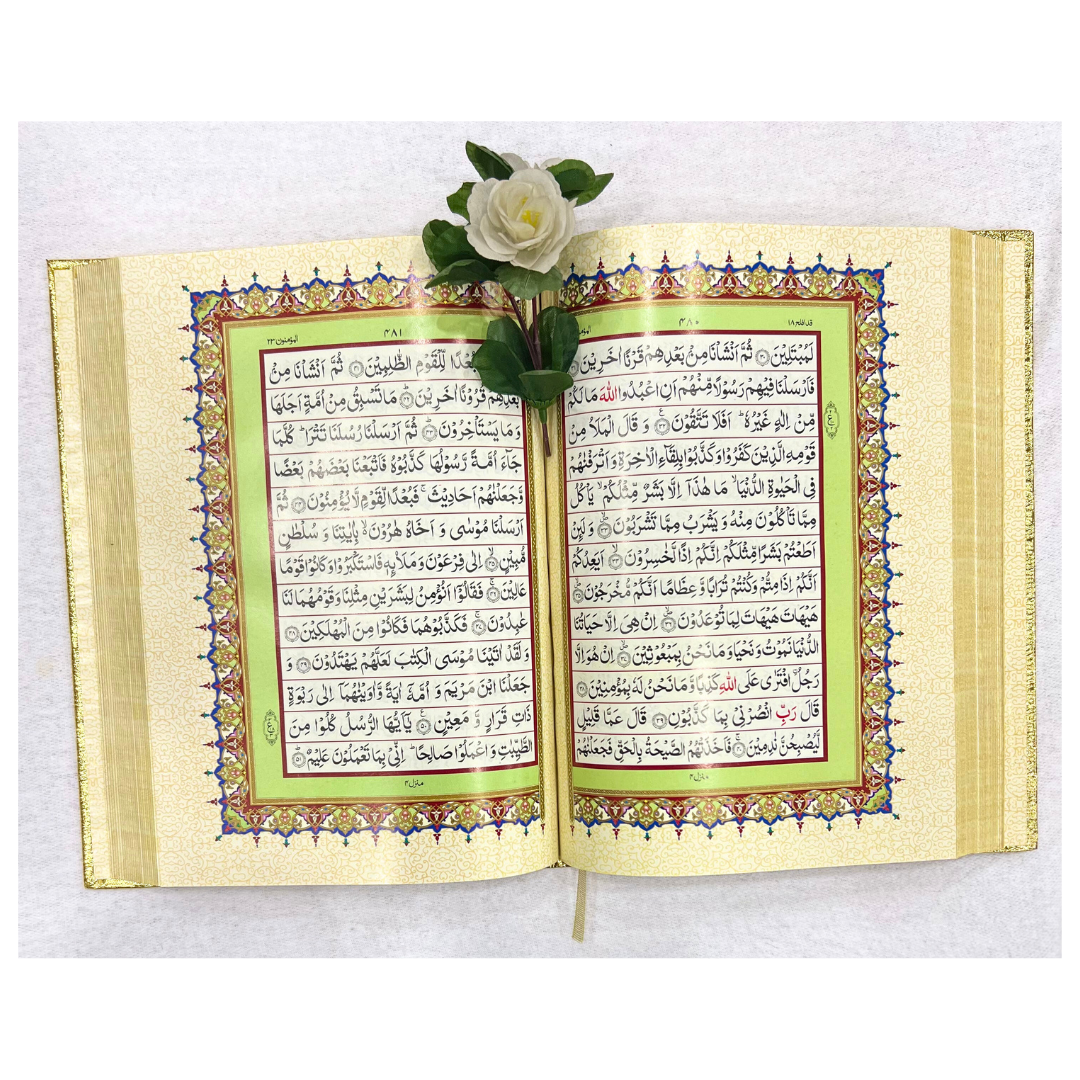 قد افلح ۱۸
۴۸۰
لَمُبْتَلِيْنَ ۳۰ ثُمَّ اَنْشَاْنَا مِنْۢ بَعْدِهِمْ قَرْنًا اٰخَرِيْنَ
فَاَرْسَلْنَا فِيْهِمْ رَسُوْلًا مِّنْهُمْ اَنِ اعْبُدُوا اللّٰهَ مَا لَكُمْ
مِّنْ اِلٰهٍ غَيْرُهٗ ؕ اَفَلَا تَتَّقُوْنَ ۳۲ وَ قَالَ الْمَلَاُ مِنْ
قَوْمِهِ الَّذِيْنَ كَفَرُوْا وَ كَذَّبُوْا بِلِقَآءِ الْاٰخِرَةِ وَ اَتْرَفْنٰهُمْ
فِى الْحَيٰوةِ الدُّنْيَا ۙ مَا هٰذَاۤ اِلَّا بَشَرٌ مِّثْلُكُمْ ۙ يَاْكُلُ
مِمَّا تَاْكُلُوْنَ مِنْهُ وَ يَشْرَبُ مِمَّا تَشْرَبُوْنَ ۳۳ وَ لَئِنْ
اَطَعْتُمْ بَشَرًا مِّثْلَكُمْ اِنَّكُمْ اِذًا لَّخٰسِرُوْنَ ۳۴ اَيَعِدُكُمْ
اَنَّكُمْ اِذَا مِتُّمْ وَ كُنْتُمْ تُرَابًا وَّ عِظَامًا اَنَّكُمْ مُّخْرَجُوْنَ ۳۵
هَيْهَاتَ هَيْهَاتَ لِمَا تُوْعَدُوْنَ ۳۶ اِنْ هِىَ اِلَّا حَيَاتُنَا
الدُّنْيَا نَمُوْتُ وَ نَحْيَا وَ مَا نَحْنُ بِمَبْعُوْثِيْنَ ۳۷ اِنْ هُوَ اِلَّا
رَجُلُ ۨ افْتَرٰى عَلَى اللّٰهِ كَذِبًا وَّ مَا نَحْنُ لَهٗ بِمُؤْمِنِيْنَ ۳۸
قَالَ رَبِّ انْصُرْنِىْ بِمَا كَذَّبُوْنِ ۳۹ قَالَ عَمَّا قَلِيْلٍ
لَّيُصْبِحُنَّ نٰدِمِيْنَ ۴۰ فَاَخَذَتْهُمُ الصَّيْحَةُ بِالْحَقِّ فَجَعَلْنٰهُمْ
منزل ۴
۴۸۱
المؤمنون ۲۳
بُعْدًا لِّلْقَوْمِ الظّٰلِمِيْنَ ۴۱ ثُمَّ اَنْشَاْنَا مِنْۢ
بَعْدِهِمْ قُرُوْنًا اٰخَرِيْنَ ۴۲ مَا تَسْبِقُ مِنْ اُمَّةٍ اَجَلَهَا
وَ مَا يَسْتَاْخِرُوْنَ ۴۳ ثُمَّ اَرْسَلْنَا رُسُلَنَا تَتْرَا ؕ كُلَّمَا
جَآءَ اُمَّةً رَّسُوْلُهَا كَذَّبُوْهُ فَاَتْبَعْنَا بَعْضَهُمْ بَعْضًا
وَّ جَعَلْنٰهُمْ اَحَادِيْثَ ۚ فَبُعْدًا لِّقَوْمٍ لَّا يُؤْمِنُوْنَ ۴۴ ثُمَّ
اَرْسَلْنَا مُوْسٰى وَ اَخَاهُ هٰرُوْنَ ۙ بِاٰيٰتِنَا وَ سُلْطٰنٍ
مُّبِيْنٍ ۴۵ اِلٰى فِرْعَوْنَ وَ مَلَا۟ئِهٖ فَاسْتَكْبَرُوْا وَ كَانُوْا قَوْمًا
عَالِيْنَ ۴۶ فَقَالُوْۤا اَنُؤْمِنُ لِبَشَرَيْنِ مِثْلِنَا وَ قَوْمُهُمَا لَنَا
عٰبِدُوْنَ ۴۷ فَكَذَّبُوْهُمَا فَكَانُوْا مِنَ الْمُهْلَكِيْنَ ۴۸
وَ لَقَدْ اٰتَيْنَا مُوْسَى الْكِتٰبَ لَعَلَّهُمْ يَهْتَدُوْنَ ۴۹ وَ
جَعَلْنَا ابْنَ مَرْيَمَ وَ اُمَّهٗۤ اٰيَةً وَّ اٰوَيْنٰهُمَاۤ اِلٰى رَبْوَةٍ
ذَاتِ قَرَارٍ وَّ مَعِيْنٍ ۵۰ يٰۤاَيُّهَا الرُّسُلُ كُلُوْا مِنَ
الطَّيِّبٰتِ وَ اعْمَلُوْا صَالِحًا ؕ اِنِّىْ بِمَا تَعْمَلُوْنَ عَلِيْمٌ ۵۱
منزل ۴